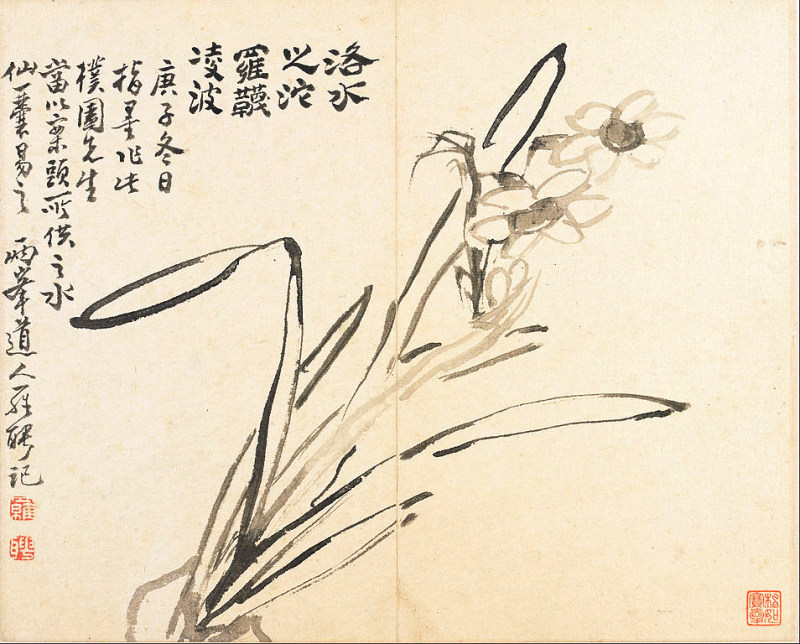 洛水
之沱
羅韈
凌波
庚子冬日
指墨作此
樸園先生
當以案頭所供之水
仙一囊易之 兩峯道人羅聘記
羅
聘